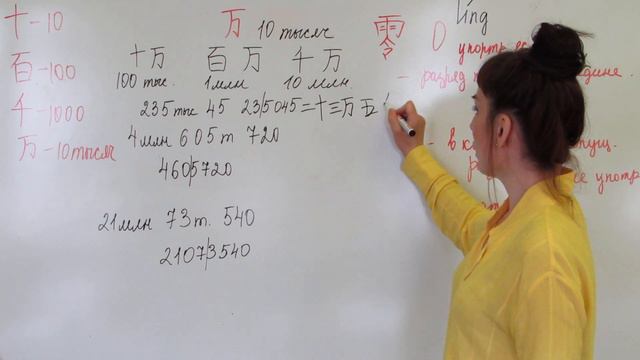 十-10
百-100
千-1000
万-10 тысяч
万 10 тысяч
十万 百万 千万
100 тыс. 1 млн 10 млн.
235 тыс 45 23/5045=二十三万五
4 млн 605 т 720
460/5720
21 млн 73 т. 540
2107/3540
零 0 líng
употр
- разряд
- в
употр